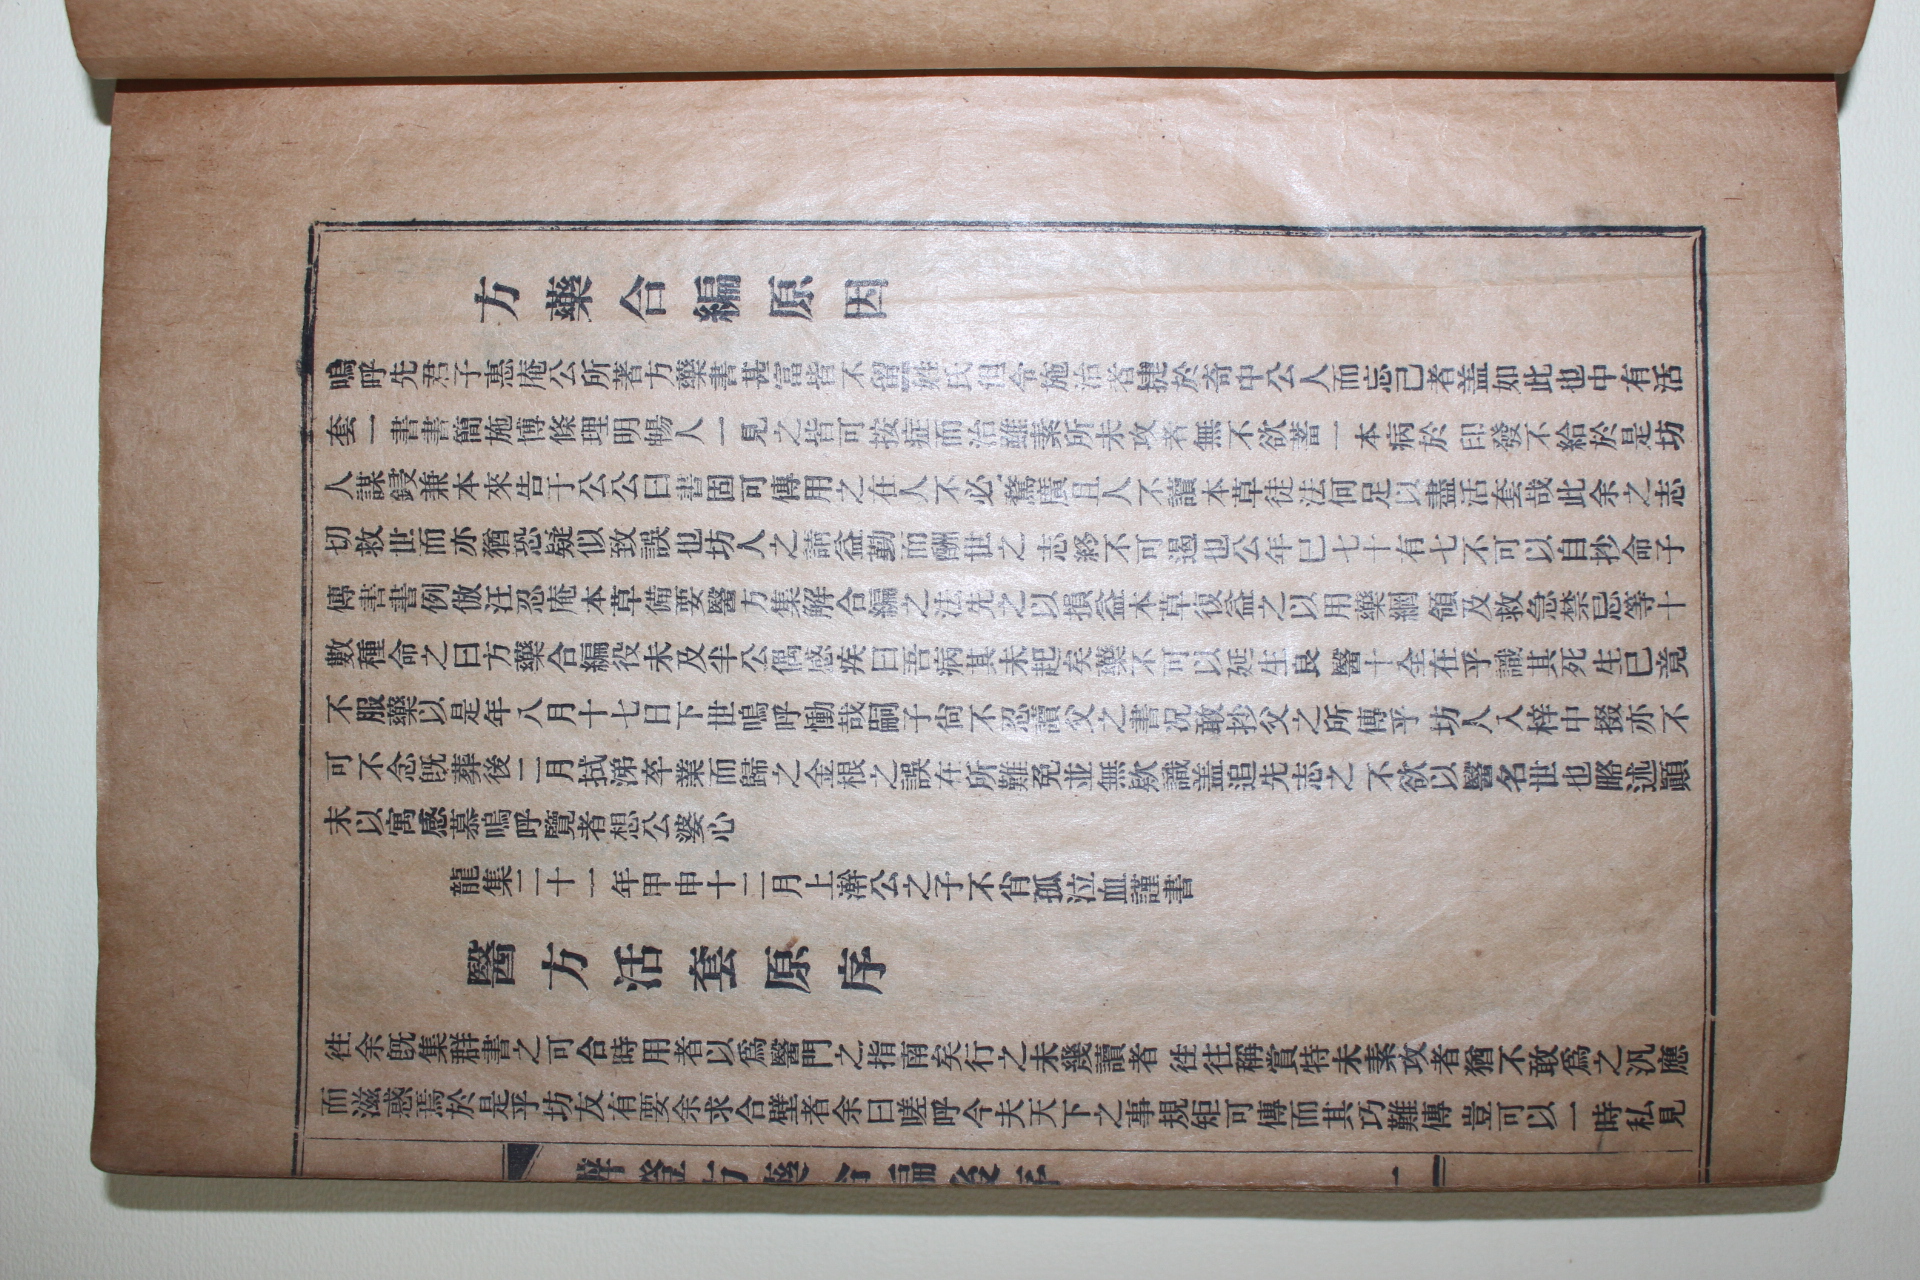 方藥合編原因
嗚呼先君子惠庵公所著方藥書甚富皆不留姓氏但令施治者捷於奇中公人而忘己者盖如此也中有活
套一書書簡施博條理明暢人一見之皆可按症而治雖素所未攻者無不欲蓄一本病於印發不給於是坊
人謀鋟兼本來告于公公曰書固可傳用之在人不必騖廣且人不讀本草徒法何足以盡活套哉此余之志
切救世而亦猶恐疑似致誤也坊人之請益勤而酬世之志終不可遏也公年已七十有七不可以自抄命子
傳書書例倣汪忍庵本草備要醫方集解合編之法先之以損益本草復益之以用藥綱領及救急禁忌等十
數種命之曰方藥合編役未及半公偶感疾曰吾病其未起矣藥不可以延生良醫十全在乎識其死生已竟
不服藥以是年八月十七日下世嗚呼慟哉嗣子尙不忍讀父之書況敢抄父之所傳乎坊人入梓中掇亦不
可不念旣葬後二月拭涕卒業而歸之金根之誤在所難免並無欵識盖追先志之不欲以醫名世也略述顚
末以寓感慕嗚呼覽者想公婆心
龍集二十一年甲申十二月上澣公之子不肖孤泣血謹書
醫方活套原序
徃余旣集群書之可合時用者以爲醫門之指南矣行之未幾讀者徃往稱賞特未素攻者猶不敢爲之汎應
而滋惑焉於是乎坊友有要余求合壁者余曰嗟呼今夫天下之事規矩可傳而其巧難傳豈可以一時私見